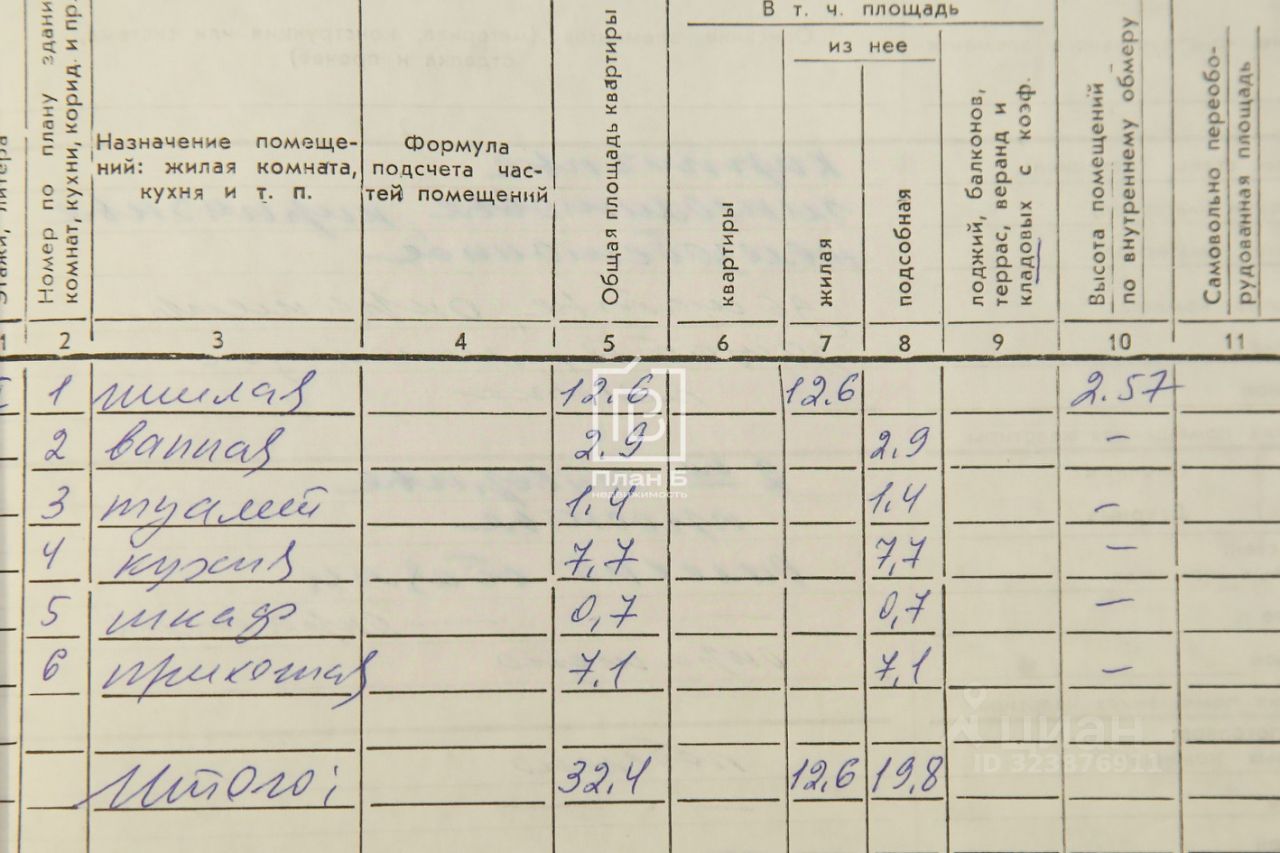 В т. ч. площадь
из нее
Номер по плану
комнат, кухни, корид. и пр.
Назначение помеще-
ний: жилая комната,
кухня и т. п.
Формула
подсчета час-
тей помещений
Общая площадь квартиры
квартиры
жилая
подсобная
лоджий, балконов,
террас, веранд и
кладовых с коэф.
Высота помещений
по внутреннему обмеру
Самовольно переобо-
рудованная площадь
1 2 3 4 5 6 7 8 9 10 11
1 жилая 12.6 12.6 2.57
2 ванная 2.9 2.9 –
3 туалет 1.4 1.4 –
4 кухня 7,7 7,7 –
5 шкаф 0,7 0,7 –
6 прихожая 7.1 7,1 –
Итого: 32.4 12.6 19,8
План Б
недвижимость
циан
ID 323876911